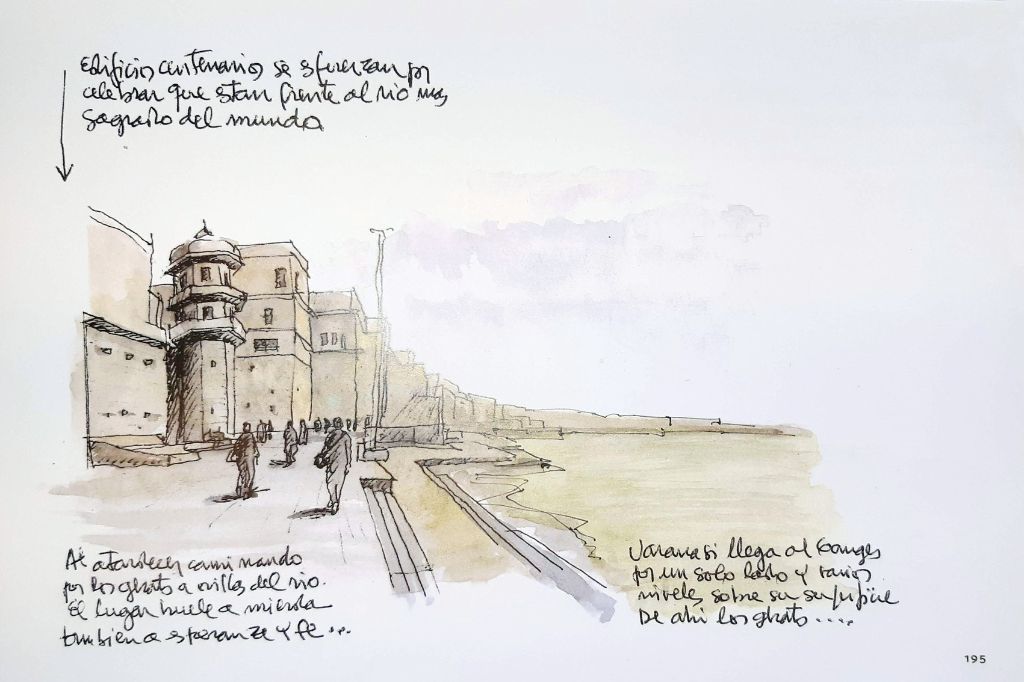 Edificios centenarios se esfuerzan por
celebrar que estan frente al rio mas
sagrado del mundo
Al atardecer caminando
por los ghats a orillas del rio.
El lugar huele a mierda
tambien a esperanza y fe...
Varanasi llega al Ganges
por un solo lado y varios
niveles sobre su superficie
De ahi los ghats....
195